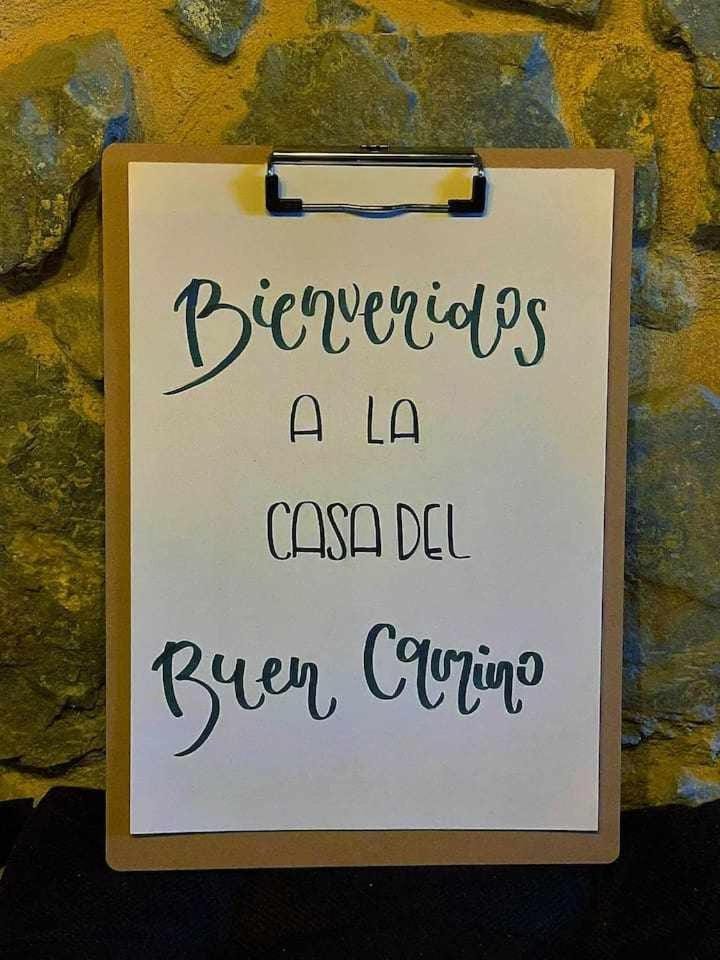 Bienvenidos
A LA
CASA DEL
Buen Camino